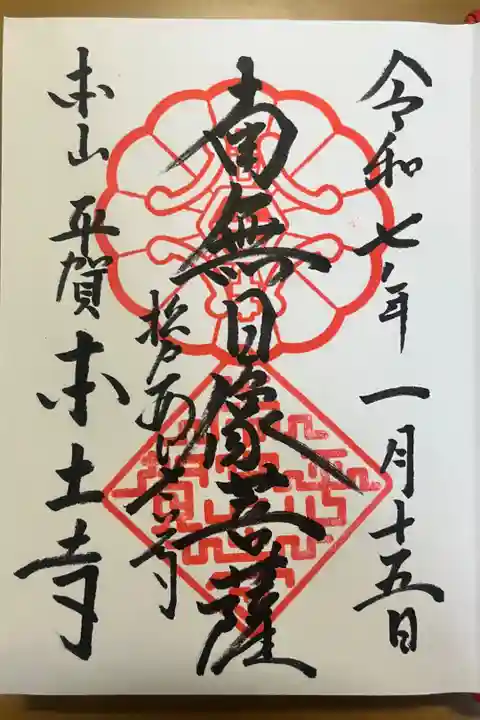 令和七年一月十五日
南無日像菩薩
松戸あじさい寺
本山 平賀 本土寺